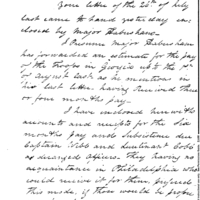 Your letter of the 25th of July
last came to hand yesterday in
closed by Major Habersham.
I presume Major Habersham
has forwarded an estimate for the pay
of the troops in Georgia up to the 1st
of August last as he mentions in
his last letter having received three
or four months pay.
I have enclosed herewith
accounts and receipts for the Six
months pay and Subsistence due
Captain Webb and Lieutenant Cobbs
as deranged officers. They having no
acquaintance in Philadelphia who
could receive it for them, requested
this mode, if those would be proper